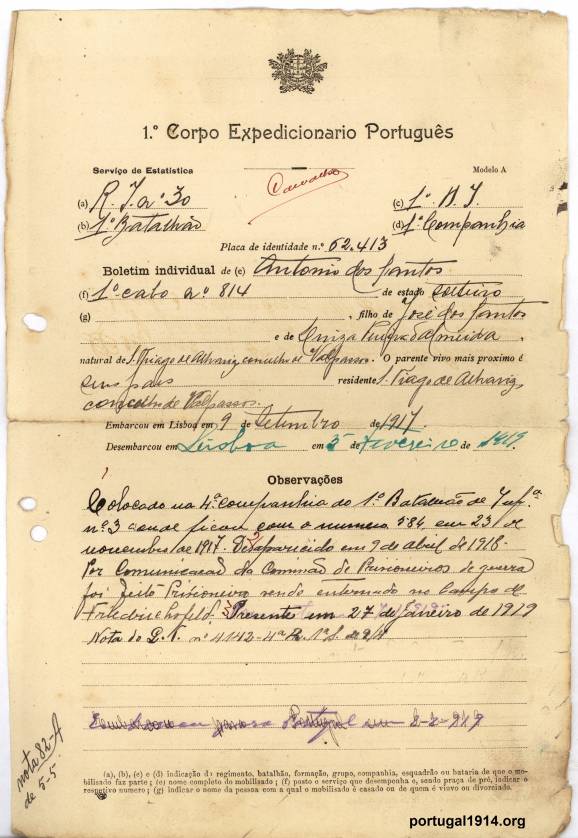 1.º Corpo Expedicionario Português
Serviço de Estatistica Modelo A
Carvalho
(a) R. I. nº 30 (c) 1º B. I.
(b) 1º Batalhão (d) 1ª Companhia
Placa de identidade n.º 62.413
Boletim individual de (e) Antonio dos Santos
(f) 1º cabo nº 814 de estado solteiro
(g) , filho de José dos Santos
e de d'Almeida,
natural de S. Thiago de Alhariz concelho de Valpassos. O parente vivo mais proximo é
seus pais residente S. Tiago de Alhariz
concelho de Valpassos.
Embarcou em Lisboa em 9 de Setembro de 1917.
Desembarcou em Lisboa em 5 de Fevereiro de 1919
Observações
1
Colocado na 4ª companhia do 1º Batalhão de Infª
nº 3 aonde ficou com o numero 584, em 23 de
novembro de 1917. 2 Desaparecido em 9 de abril de 1918.
Por Comunicação da Comissão de Prisioneiros de guerra
foi feito Prisioneiro sendo internado no Campo de
Friedrichsfeld. 3 Presente em 27 de janeiro de 1919
Nota do nº 4142-4ª
Embarcou para Portugal em 2-919
nota 82-A
de 5-5.
(a), (b), (c) e (d) indicação do regimento, batalhão, formação, grupo, companhia, esquadrão ou bataria de que o mo-
bilisado faz parte; (e) nome completo do mobilisado; (f) posto e serviço que desempenha e, sendo praça de pré, indicar o
respetivo numero; (g) indicar o nome da pessoa com a qual o mobilisado é casado ou de quem é viuvo ou divorciado.
portugal1914.org